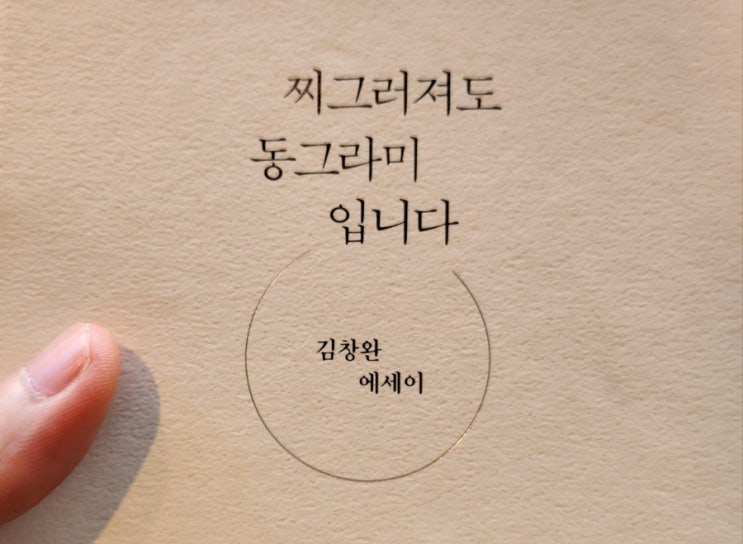 찌그러져도
동그라미
입니다
김창완
에세이